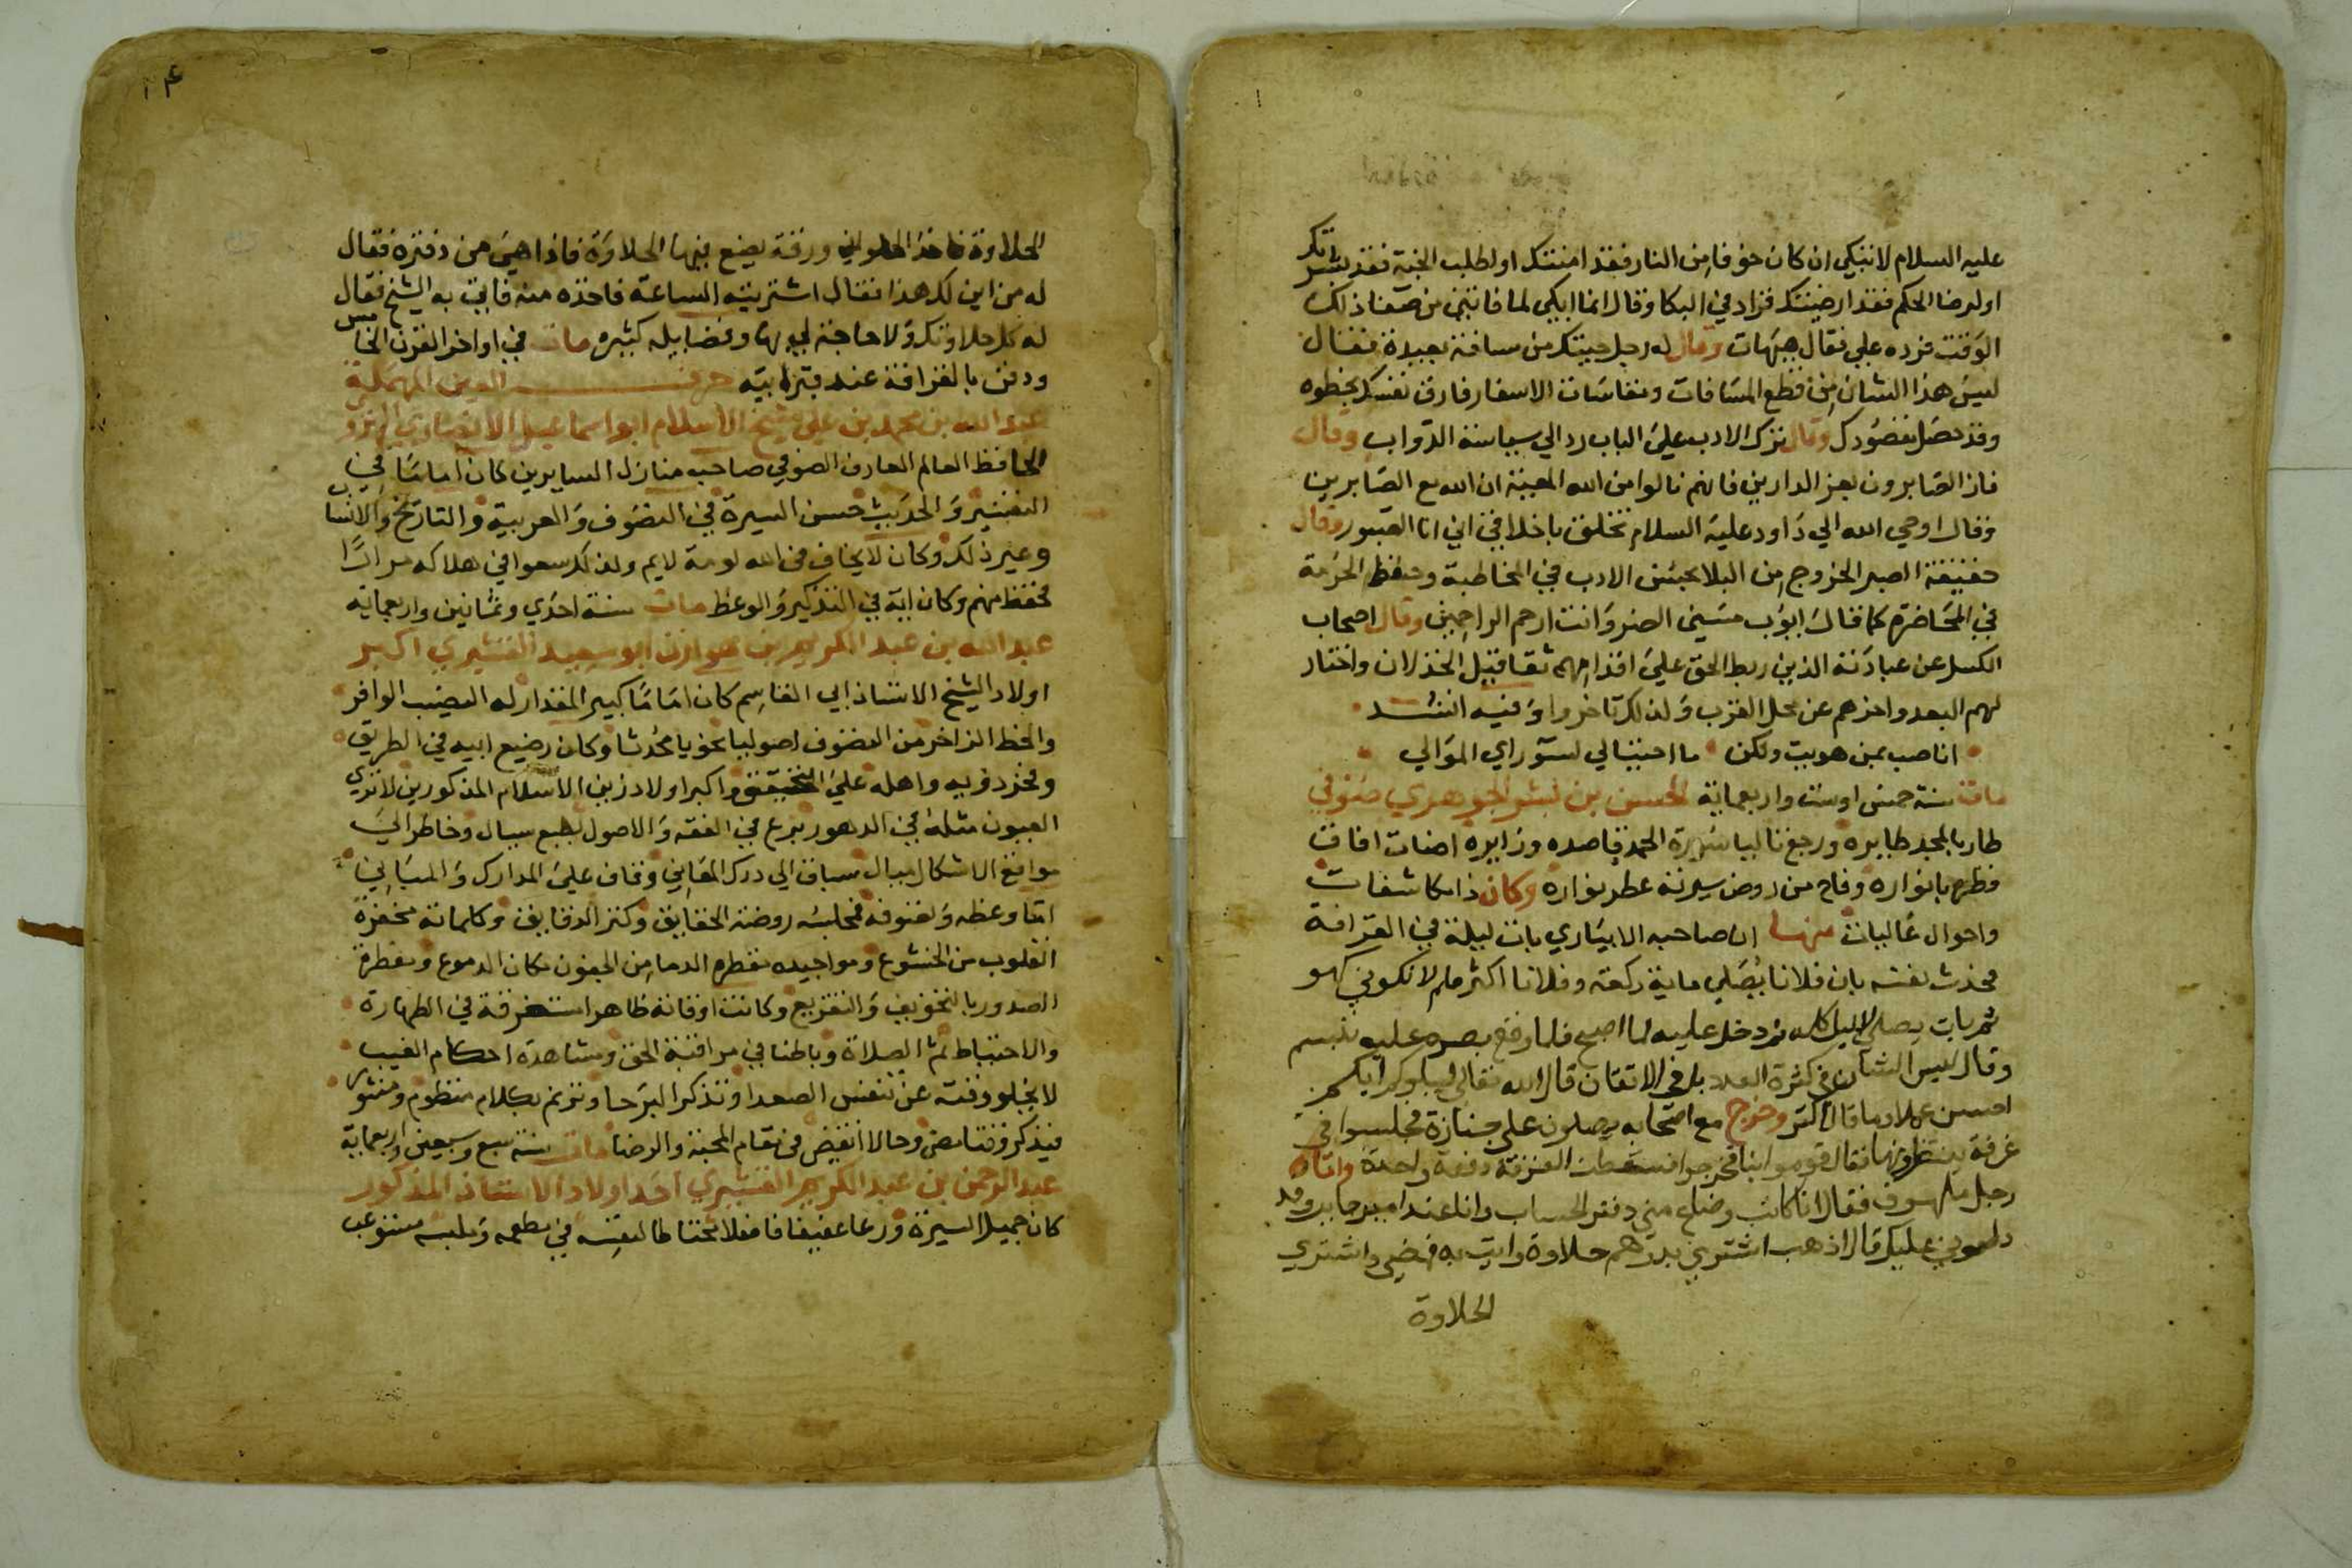 عليه السلام لا تبكي ان كان خوفا من النار فقد امنتك او لطلب الجنة فقد بشرتك
او لرضا الحكم فقد ارضيتك فزاد في البكا وقال انما ابكي لما فاتني من صفا ذلك
الوقت فرده علي فقال هيهات وقال له رجل جيتك من مسافة بعيدة فقال
ليس هذا الشان من قطع المسافات ومقاسات الاسفار فارق نفسك بخطوه
وقد حصل مقصودك وقال ترك الادب علي الباب رد الي سياسة الدواب وقال
فاز الصابرون بعز الدارين فانهم نالوا من الله المعية ان الله مع الصابرين
وقال اوحي الله الي داود عليه السلام تخلق باخلاقي اني انا الصبور وقال
حقيقة الصبر الخروج من البلا بحسن الادب في المخاطبة وحفظ الحرمة
في المحاضرة كما قال ايوب مسني الضر وانت ارحم الراحمين وقال اصحاب
الكسل عن عبادته الذين ربط الحق علي اقدامهم ثقاقيل الخذلان واختار
لهم البعد واخرهم عن محل القرب ولذلك تاخروا وفيه انشد
انا صب بمن هويت ولكن ما احتيالي لسو راي الموالي
مات سنة خمس اوست واربعماية الحسن بن بشر الجوهري صوفي
طار بالمجد طايره ورجع ثانيا شهرة الحمد قاصده وزايره اضات افاق
قطره بانواره وفاح من روض سيرته عطر نواره وكان ذا مكاشفات
واحوال غاليات منها ان صاحبه الابياري بات ليلة في القرافة
فحدث نفسه بان فلانا يصلي ماية ركعة وفلانا اكثر فلم لا تكوني كهو
ثم بات يصلي الليل كله ثم دخل عليه لما اصبح فلما وقع بصره عليه تبسم
وقال ليس الشان في كثرة العدد بل في الاتقان قال الله تعالي ليبلوكم ايكم
احسن عملا وما قال اكثر وخرج مع اصحابه يصلون علي جنازة فجلسوا في
غرفة ينتظرونها فقال قوموا بنا فخرجوا فسقطت الغرفة دفعة واحدة واتاه
رجل ملهوف فقال انا كاتب وضاع مني دفتر الحساب وانا عند امير جاير وقد
دلوني عليك قال اذهب اشتري بدرهم حلاوة وايت به فمضي واشتري
الحلاوة
الحلاوة فاخذ الحلواني ورقة يضع فيها الحلاوة فاذا هي من دفتره فقال
له من اين لك هذا فقال اشتريته الساعة فاخذه منه فاتي به الشيخ فقال
له كل حلاوتك ولا حاجة لي بها وفضايله كثيره مات في اواخر القرن الخامس
ودفن بالقرافة عند قبر ابيه حرف العين المهملة
عبد الله بن محمد بن علي شيخ الاسلام ابو اسماعيل الانصاري الهروي
الحافظ العالم العارف الصوفي صاحب منازل السايرين كان اماما في
التفسير والحديث حسن السيرة في التصوف والعربية والتاريخ والانساب
وغير ذلك وكان لا يخاف في الله لومة لايم ولذلك سعوا في هلاكه مرارا
فحفظ منهم وكان اية في التذكير والوعظ مات سنة احدي وثمانين واربعماية
عبد الله بن عبد الكريم بن هوازن ابو سعيد القشيري اكبر
اولاد الشيخ الاستاذ ابي القاسم كان اماما كبير المقدار له النصيب الوافر
والحظ الزاخر من التصوف اصوليا نحويا محدثا وكان رضيع ابيه في الطريق
وفخر ذويه واهله علي التحقيق واكبر اولاد زين الاسلام المذكورين لا تري
العيون مثله في الدهور برع في الفقه والاصول بطبع سيال وخاطر الي
مواقع الاشكال ميال سباق الي درك المعاني وقاف علي المدارك والمباني
اما وعظه وتصوفه فمجلسه روضة الحقايق وكنز الدقايق وكلماته محفزة
القلوب من الخشوع ومواجيده مقطره الدما من الجفون مكان الدموع ومفطرة
الصدور بالتخويف والتقريع وكانت اوقاته ظاهرا مستغرقة في الطهارة
والاحتياط ثم الصلاة وباطنا في مراقبة الحق ومشاهدة احكام الغيب
لا يخلو وقته عن تنفس الصعدا وتذكر البرحا وترنم بكلام منظوم ومنثور
فيذكر وقتا مضي وحالا انقضي في مقام المحبة والرضا مات سنة سبع وسبعين واربعماية
عبد الرحمن بن عبد الكريم القشيري احد اولاد الاستاذ المذكور
كان جميل السيرة ورعا عفيفا فاضلا محتاطا لنفسه في مطعمه وملبسه مستوعب